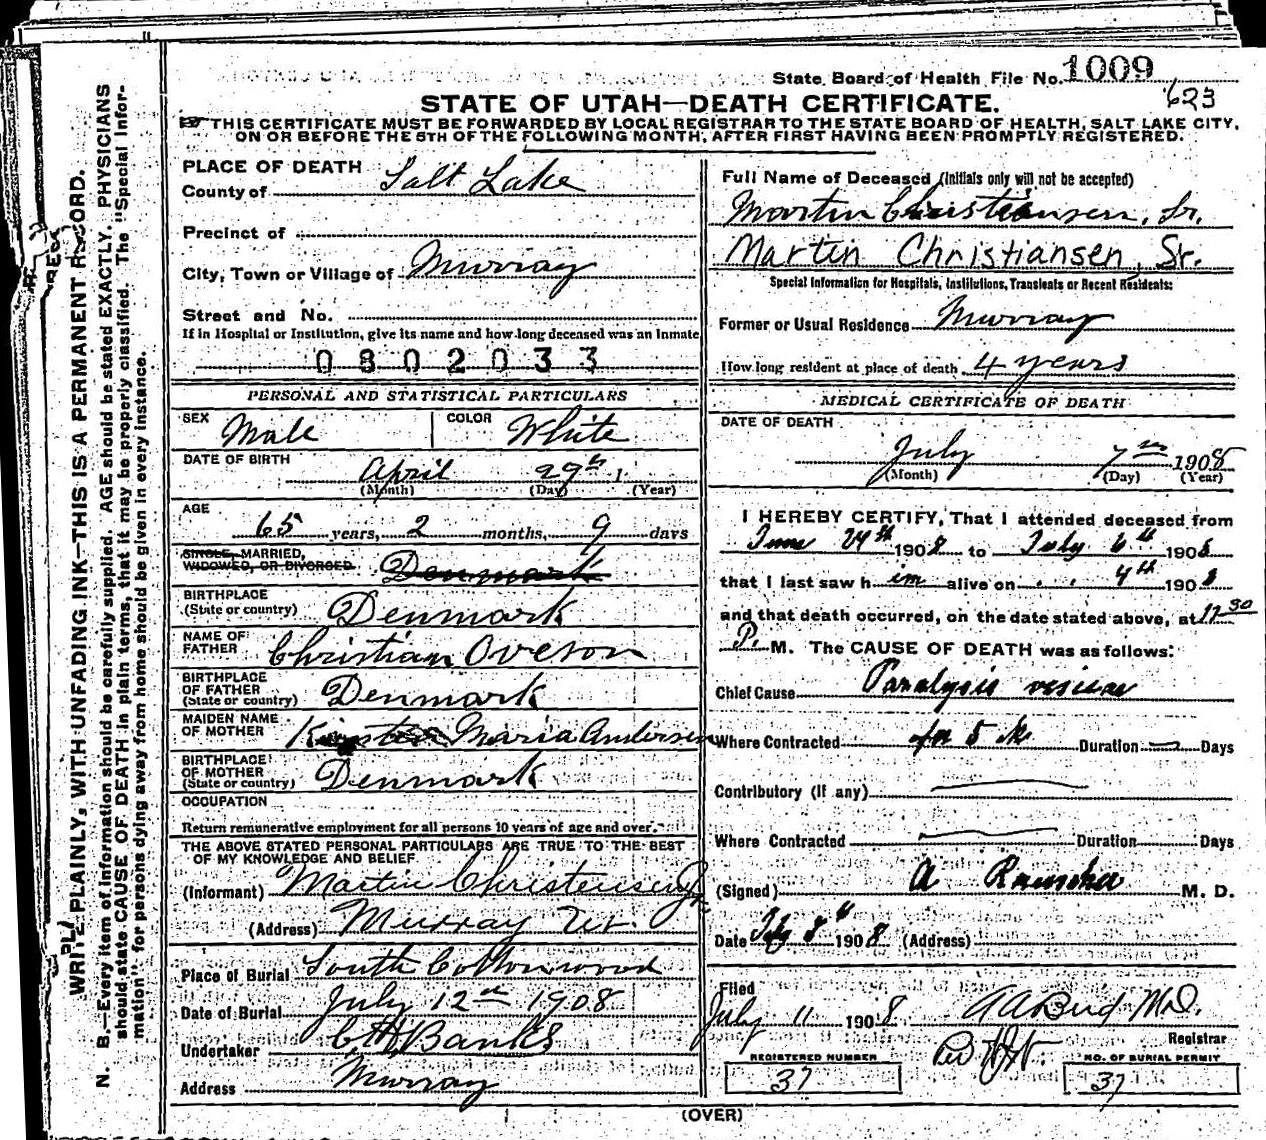 State Board of Health File No. 1009
623
STATE OF UTAH—DEATH CERTIFICATE.
THIS CERTIFICATE MUST BE FORWARDED BY LOCAL REGISTRAR TO THE STATE BOARD OF HEALTH, SALT LAKE CITY,
ON OR BEFORE THE 5TH OF THE FOLLOWING MONTH, AFTER FIRST HAVING BEEN PROMPTLY REGISTERED.
WRITE PLAINLY, WITH UNFADING INK—THIS IS A PERMANENT RECORD.
N. B.—Every item of information should be carefully supplied. AGE should be stated EXACTLY. PHYSICIANS
should state CAUSE OF DEATH in plain terms, that it may be properly classified. The "Special Infor-
mation" for persons dying away from home should be given in every instance.
PLACE OF DEATH
County of Salt Lake
Precinct of
City, Town or Village of Murray
Street and No.
If in Hospital or Institution, give its name and how long deceased was an Inmate
0802033
PERSONAL AND STATISTICAL PARTICULARS
SEX Male COLOR White
DATE OF BIRTH April 29th
(Month) (Day) (Year)
AGE
65 years, 2 months, 9 days
SINGLE, MARRIED,
WIDOWED, OR DIVORCED Denmark
BIRTHPLACE
(State or country) Denmark
NAME OF
FATHER Christian Oveson
BIRTHPLACE
OF FATHER
(State or country) Denmark
MAIDEN NAME
OF MOTHER Maria Andersen
BIRTHPLACE
OF MOTHER
(State or country) Denmark
OCCUPATION
Return remunerative employment for all persons 10 years of age and over.
THE ABOVE STATED PERSONAL PARTICULARS ARE TRUE TO THE BEST
OF MY KNOWLEDGE AND BELIEF
(Informant) Martin Christensen Jr.
(Address) Murray Ut.
Place of Burial South Cottonwood
Date of Burial July 12th 1908
Undertaker C H Banks
Address Murray
Full Name of Deceased (Initials only will not be accepted)
Martin Christiansen, Sr.
Martin Christiansen, Sr.
Special Information for Hospitals, Institutions, Transients or Recent Residents:
Former or Usual Residence Murray
How long resident at place of death 4 years
MEDICAL CERTIFICATE OF DEATH
DATE OF DEATH
July 7th 1908
(Month) (Day) (Year)
I HEREBY CERTIFY, That I attended deceased from
June 1908 to July 6th 1908
that I last saw him alive on 1908
and that death occurred, on the date stated above, at
P. M. The CAUSE OF DEATH was as follows:
Chief Cause Paralysis
Where Contracted Duration Days
Contributory (If any)
Where Contracted Duration Days
(Signed) A M. D.
Date 8th 1908 (Address)
Filed
July 11 1908
Registrar
REGISTERED NUMBER
37
NO. OF BURIAL PERMIT
37
(OVER)